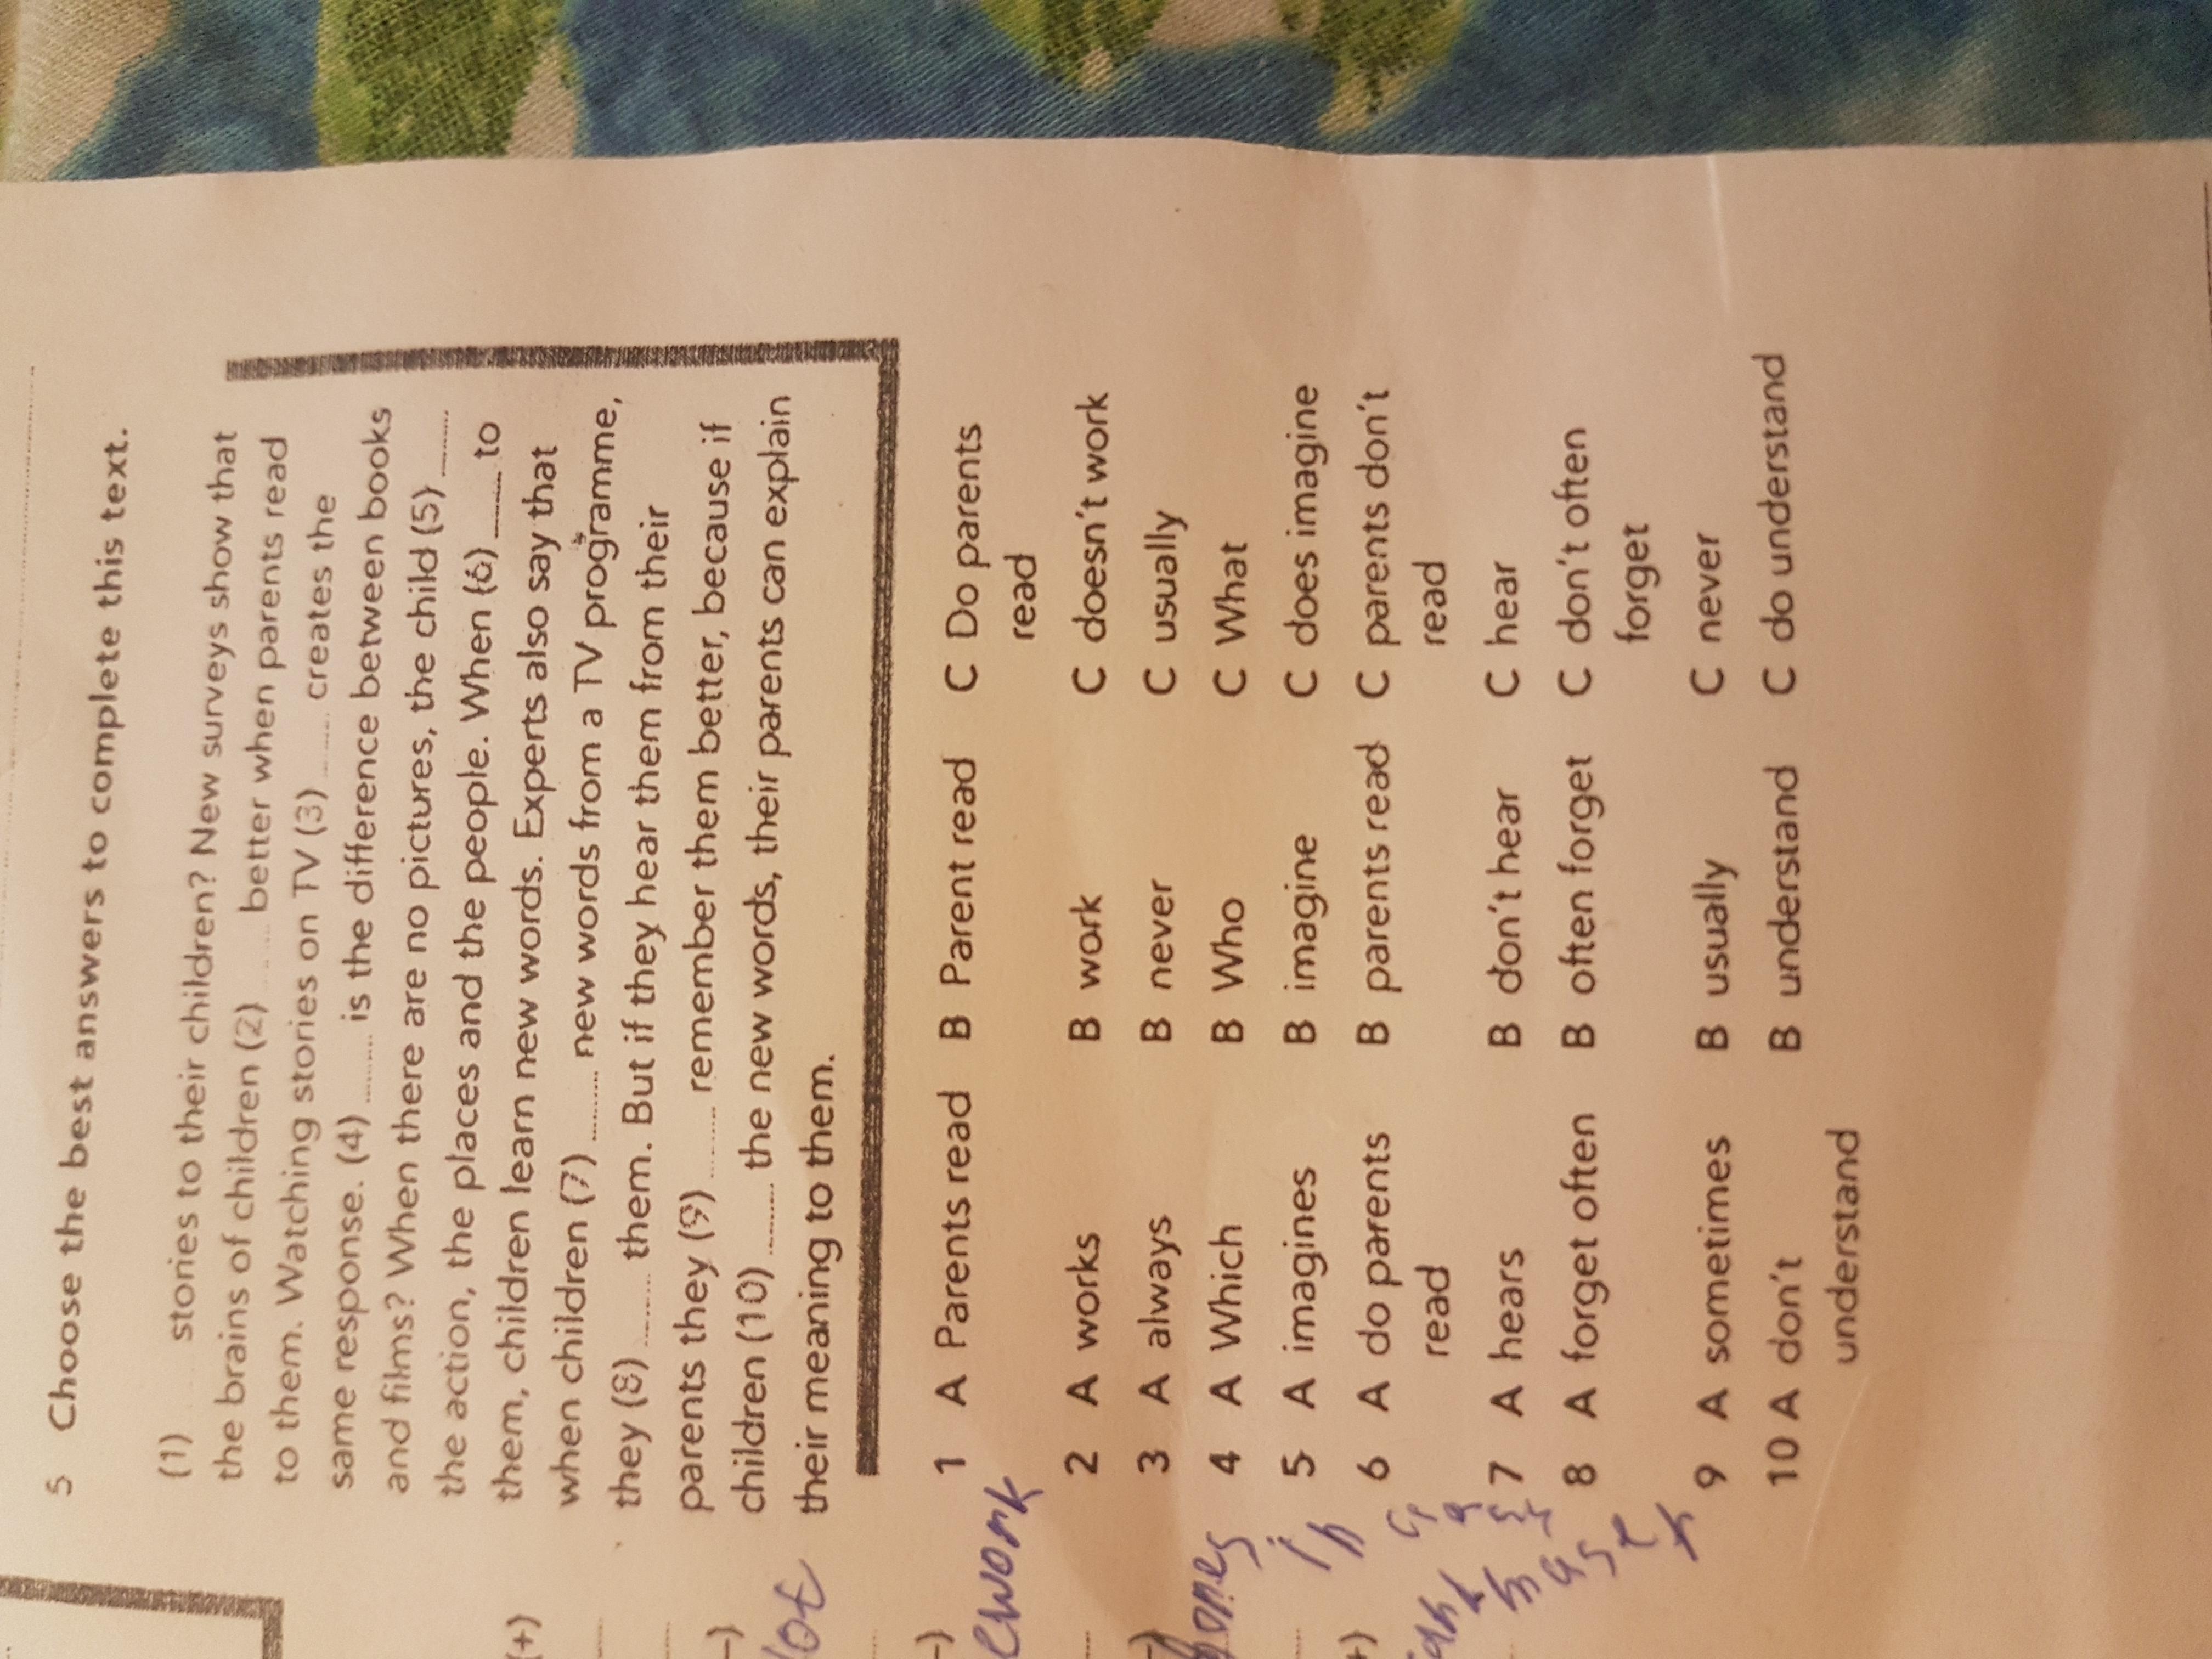 5 Choose the best answers to complete this text.
(1) ........ stories to their children? New surveys show that
the brains of children (2) ........ better when parents read
to them. Watching stories on TV (3) ........ creates the
same response. (4) ........ is the difference between books
and films? When there are no pictures, the child (5) ........
the action, the places and the people. When (6) ........ to
them, children learn new words. Experts also say that
when children (7) ........ new words from a TV programme,
they (8) ........ them. But if they hear them from their
parents they (9) ........ remember them better, because if
children (10) ........ the new words, their parents can explain
their meaning to them.
1 A Parents read B Parent read C Do parents
read
2 A works B work C doesn't work
3 A always B never C usually
4 A Which B Who C What
5 A imagines B imagine C does imagine
6 A do parents B parents read C parents don't
read read
7 A hears B don't hear C hear
8 A forget often B often forget C don't often
forget
9 A sometimes B usually C never
10 A don't B understand C do understand
understand
(+)
ework